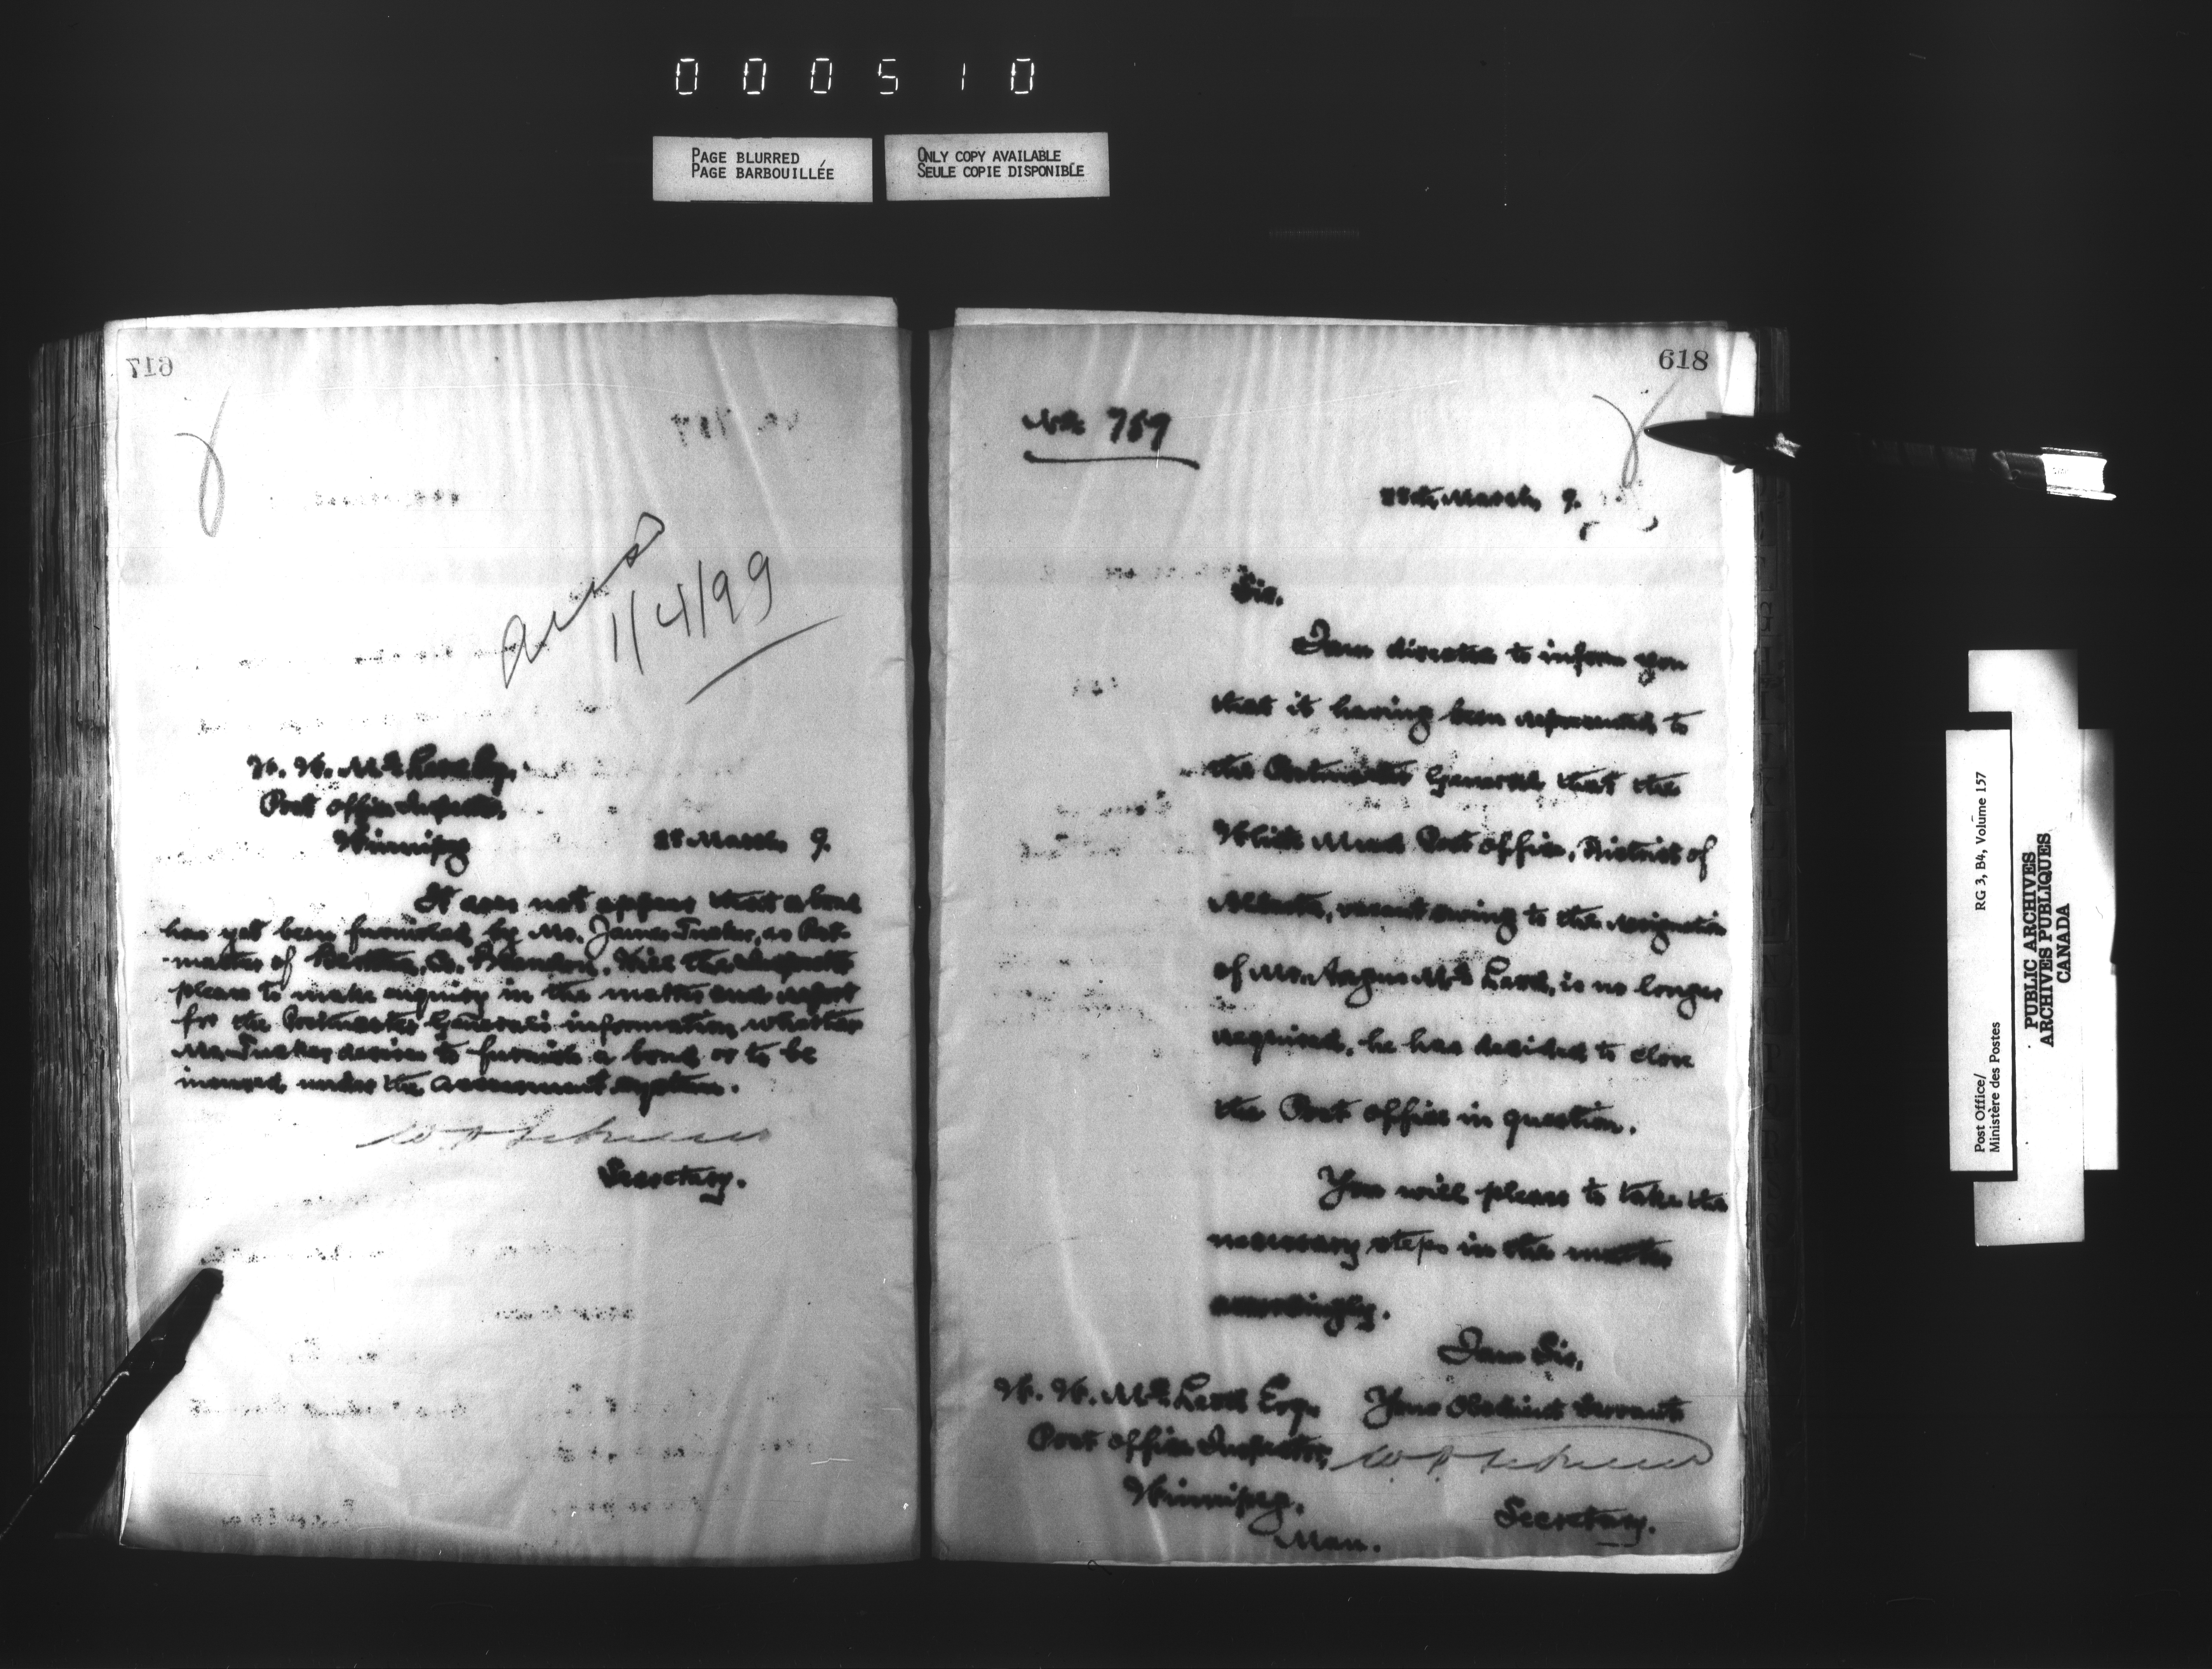 000510
PAGE BLURRED
PAGE BARBOUILLÉE
ONLY COPY AVAILABLE
SEULE COPIE DISPONIBLE
617
1/4/99
W. W. McLeod Esq.
Post Office Inspector,
Winnipeg
28 March 9.
It does not appear that a bond
has yet been furnished by Mr. James Tucker, as Post-
master of Co. Brandon. Will the Inspector
please to make enquiry in the matter and report
for the Postmaster General's information, whether
Mr. Tucker desires to furnish a bond or to be
insured under the assessment system.
Secretary.
618
No. 759
28th March, 9.
Sir,
I am directed to inform you
that it having been represented to
the Postmaster General that the
White Mud Post Office, District of
Alberta, vacant owing to the resignation
of Mr. Angus McLeod, is no longer
required, he has decided to close
the Post Office in question.
You will please to take the
necessary steps in the matter
accordingly.
I am Sir,
Your Obedient Servant
W. W. McLeod Esq.
Post Office Inspector,
Winnipeg,
Man.
Secretary.
Post Office/
Ministère des Postes
RG 3, B4, Volume 157
PUBLIC ARCHIVES
ARCHIVES PUBLIQUES
CANADA